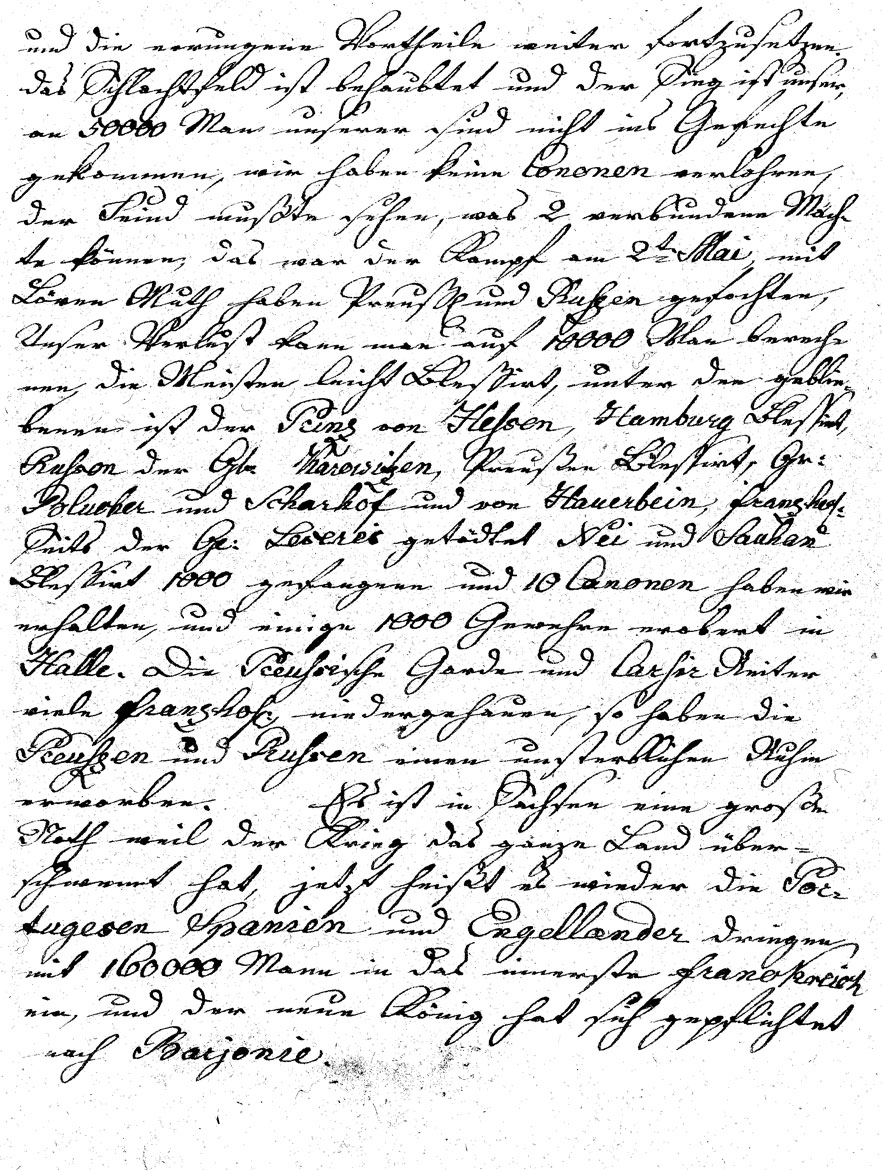 und die errungene Vortheile weiter fortzusetzen
das Schlachtfeld ist behaubtet und der Sieg ist unser,
an 50000 Man unserer sind nicht ins Gefechte
gekommen, wir haben keine Cononen verlohren,
der Feind mußte sehen, was 2 verbundene Mäch-
te können, das war der Kampf am 2t Mai, mit
Löven Muth haben Preuß und Rußen gefochten,
Unser Verlust kann man auf 10000 Man berech
nen, die Meisten leicht Blessirt, unter den geblie-
benen ist der Prinz von Hessen, Hamburg Blessirt,
Russen der Gl. Preußen Blessirt, Gr:
Polucher und Scharhof und von Hauerbein, franzhos-
Seits der Ge: Beseris getödtet Nei und Sauham
Blessirt 1000 gefangene und 10 Canonen haben wir
erhalten, und einige 1000 Gewehre erobert in
Halle. Die Preussische Garde und Carsir Reiter
viele franzhos, niedergehauen, so haben die
Preußen und Russen einen unsterblichen Ruhm
erworben. Es ist in Sachsen eine große
Noth weil der Krieg das ganze Land über-
schwemt hat, jetzt heißt es wieder die Por-
tugesen Spanien und Engellænder dringen
mit 160000 Mann in das innerste franckreich
ein, und der neue König hat sich geflichtet
nach Barjonie.